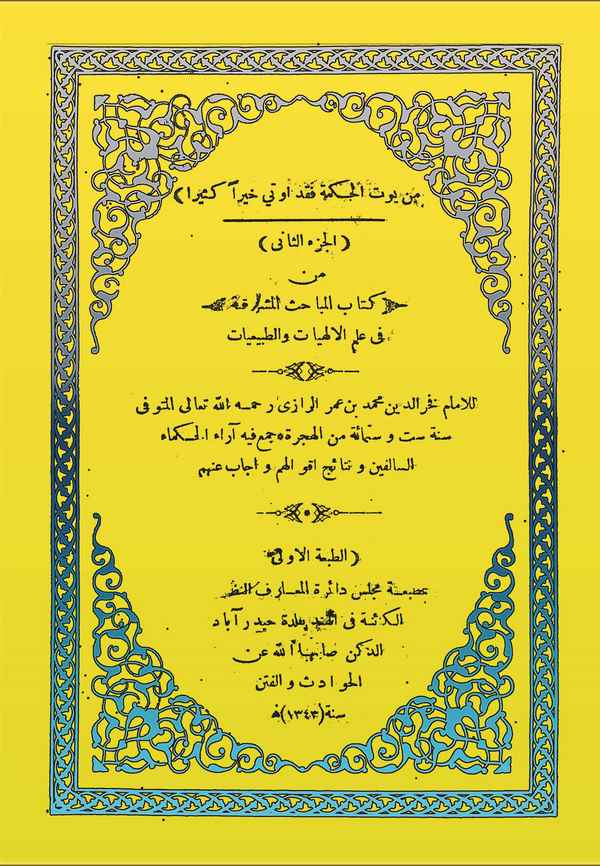 من يوت الحكمة فقد اوتي خيرا كثيرا )
( الجزء الثانى )
من
كتاب المباحث المشرقية
فى علم الالهيات والطبيعيات
للامام فخر الدين محمد بن عمر الرازى رحمه الله تعالى المتوفى
سنة ست و ستمائة من الهجرة جمع فيه آراء الحكماء
السالفين و نتائج اقوالهم و اجاب عنهم
( الطبعة الاولى
بمطبعة مجلس دائرة المعارف النظامية
الكائنة فى الهند ببلدة حيدر آباد
الدكن صانها الله عن
الحوادث والفتن
سنة (١٣٤٣) ه